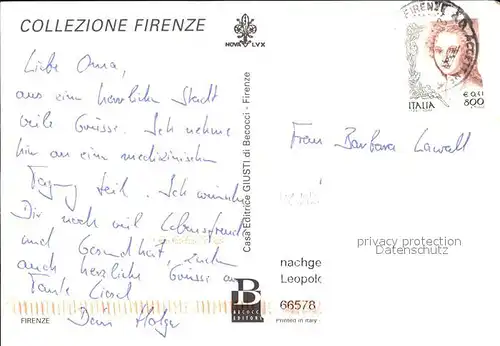 COLLEZIONE FIRENZE
NOVA LVX
FIRENZE
€ 0,41
800
ITALIA
Liebe Oma,
aus einer herrlichen Stadt
viele Grüsse. Ich nehme
hier an einer medizinischen
Tagung teil. Ich wünsche
Dir noch viel Lebensfreude
und Gesundheit, auch
auch herzliche Grüsse an
Tante Liesel
Dein Holger
Casa Editrice GIUSTI di Becocci - Firenze
Frau Barbara Lawall
privacy protection
Datenschutz
nachge
Leopold
66578
B
BECOCCI
EDITORE
Printed in Italy
FIRENZE